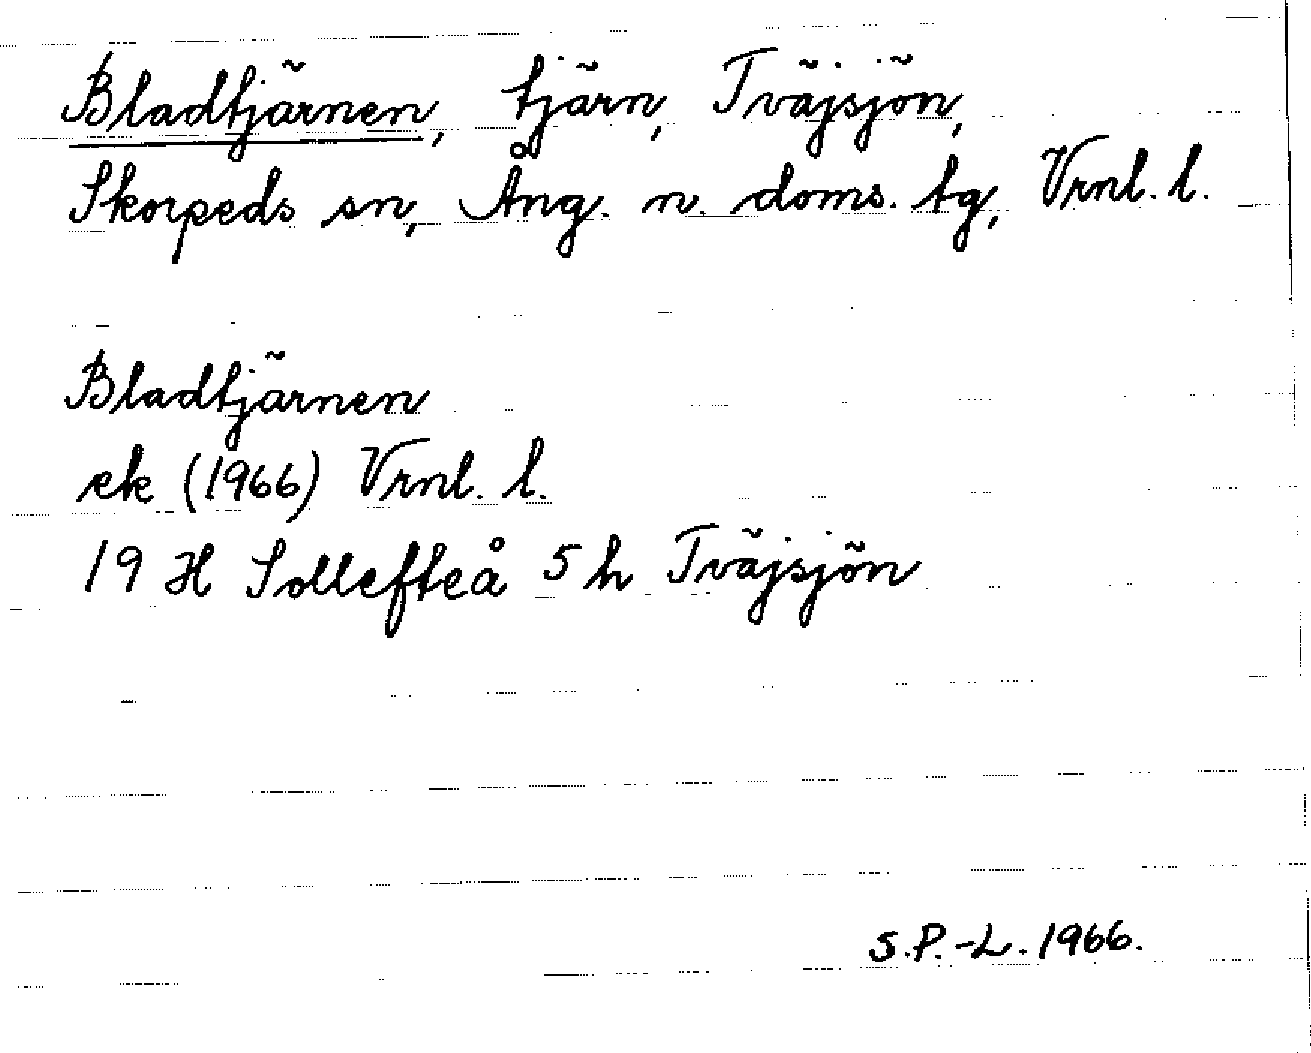 Bladtjärnen, tjärn, Tväjsjön,
Skorpeds sn, Ång. n. doms. tg, Vrnl. l.
Bladtjärnen
ek (1966) Vrnl. l.
19 H Sollefteå 5 h Tväjsjön
S.P.-L. 1966.